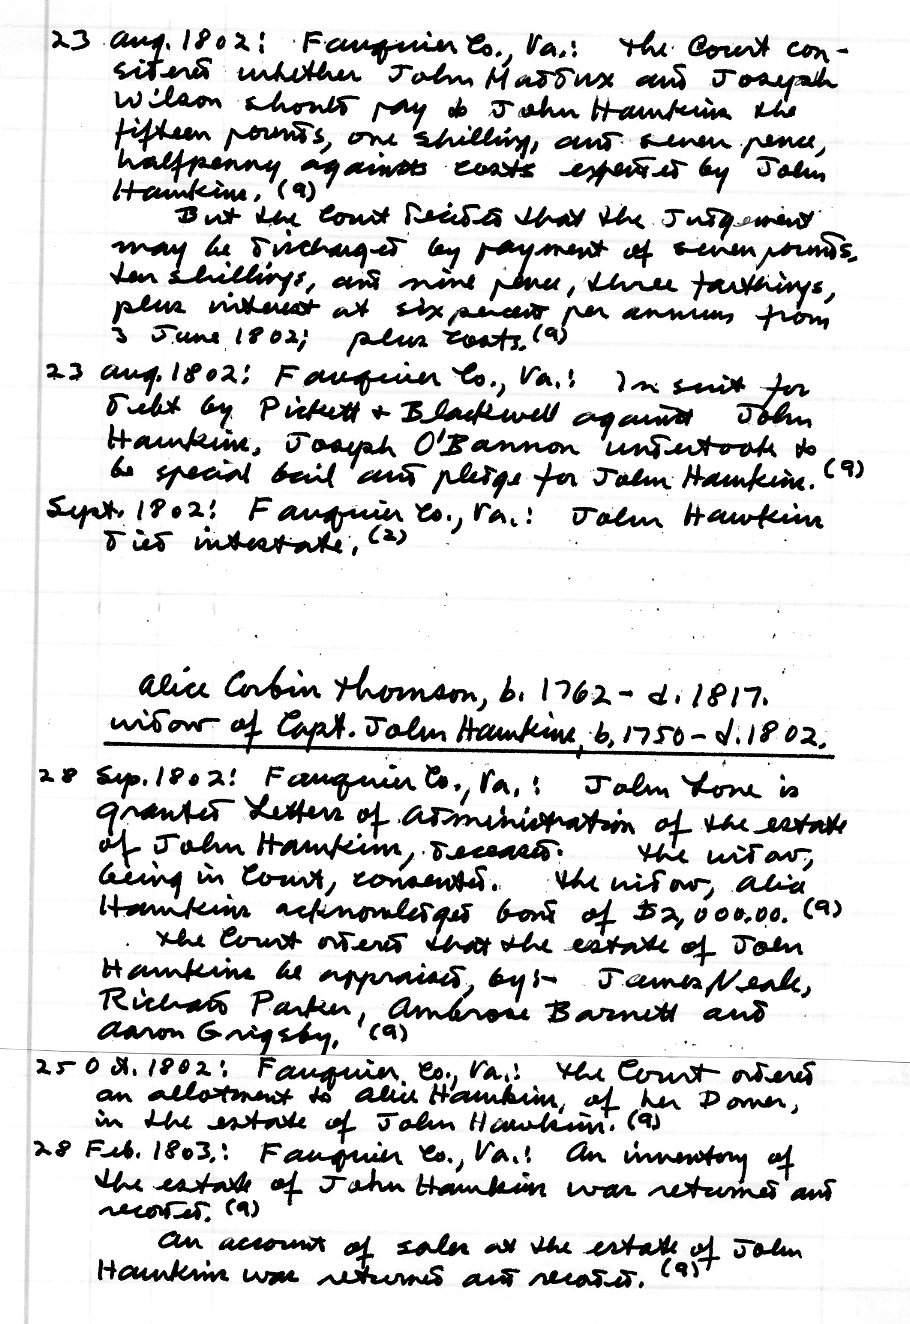 23 Aug. 1802: Fauquier Co., Va.: The Court con-
sidered whether John Maddux and Joseph
Wilson should pay to John Hawkins the
fifteen pounds, one shilling, and seven pence,
halfpenny against costs expended by John
Hawkins. (9)
But the Court decided that the Judgement
may be discharged by payment of seven pounds,
ten shillings, and nine pence, three farthings,
plus interest at six percent per annum from
3 June 1802; plus costs. (9)
23 Aug. 1802: Fauquier Co., Va.: In suit for
debt by Pickett + Blackwell against John
Hawkins, Joseph O'Bannon undertook to
be special bail and pledge for John Hawkins. (9)
Sept. 1802: Fauquier Co., Va.: John Hawkins
died intestate. (2)
Alice Corbin Thomson, b. 1762 - d. 1817.
widow of Capt. John Hawkins, b. 1750 - d. 1802.
28 Sep. 1802: Fauquier Co., Va.: John Love is
granted Letters of Administration of the estate
of John Hawkins, deceased. The widow,
being in Court, consented. The widow, Alice
Hawkins acknowledged bond of $2,000.00. (9)
The Court ordered that the estate of John
Hawkins be appraised, by:- James Neale,
Richard Parker, Ambrose Barnett and
Aaron Grigsby. (9)
25 Oct. 1802: Fauquier Co., Va.: The Court ordered
an allotment to Alice Hawkins, of her Dower,
in the estate of John Hawkins. (9)
28 Feb. 1803.: Fauquier Co., Va.: An inventory of
the estate of John Hawkins was returned and
recorded. (9)
An account of sales at the estate of John
Hawkins was returned and recorded. (9)